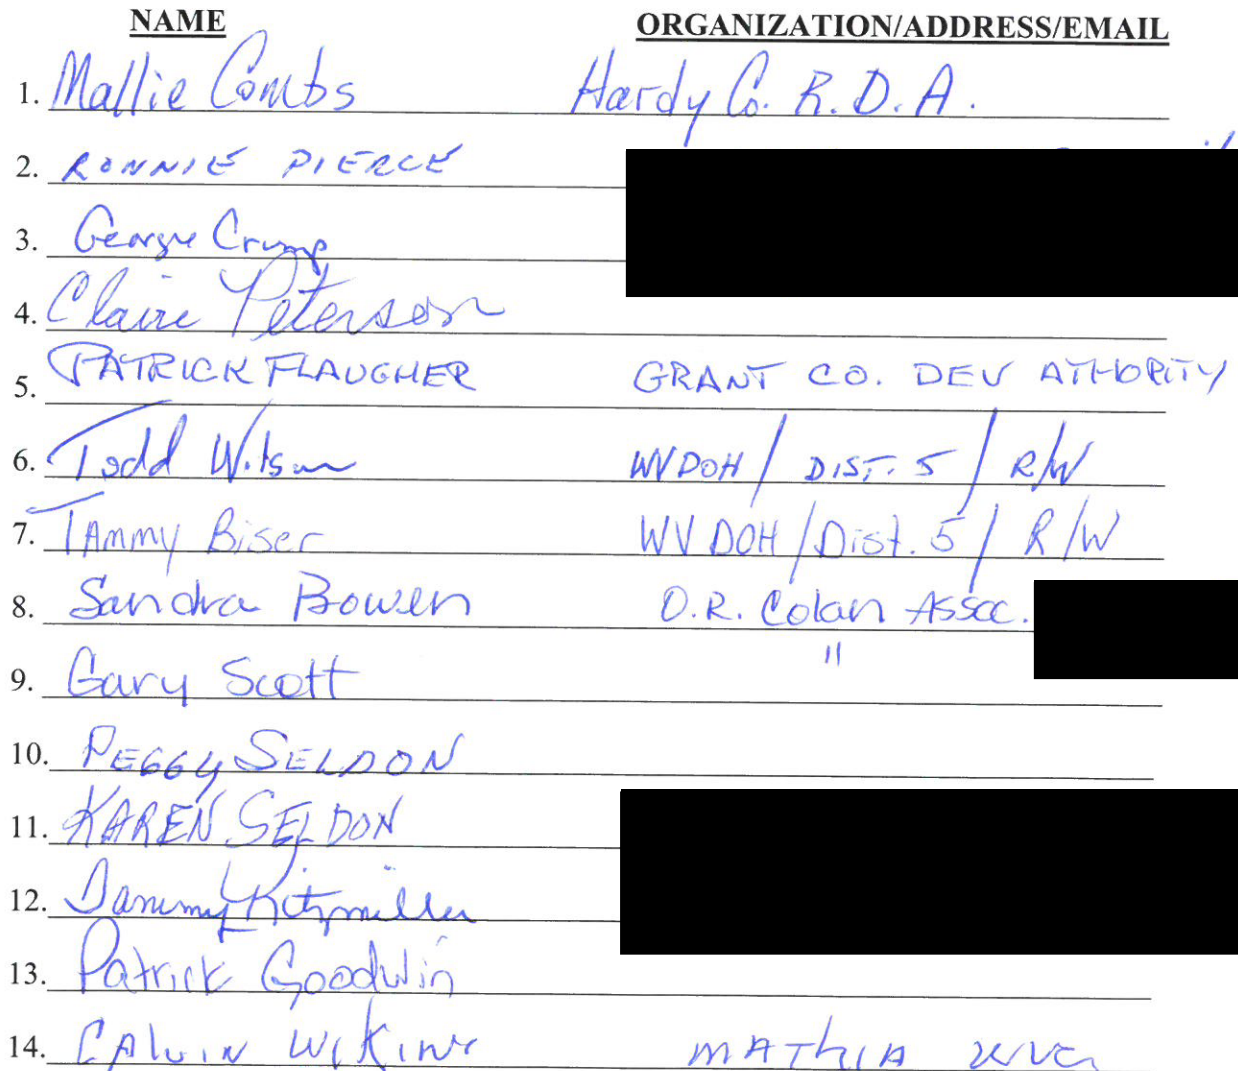 NAME ORGANIZATION/ADDRESS/EMAIL
1. Mallie Combs Hardy Co. R.D.A.
2. RONNIE PIERCE
3. George Crump
4. Claire Peterson
5. PATRICK FLAUGHER GRANT CO. DEV ATHORITY
6. Todd Wilson WVDOH / DIST. 5 / R/W
7. TAmmy Biser WV DOH / Dist. 5 / R/W
8. Sandra Bowen O.R. Colan Assoc.
9. Gary Scott "
10. PEGGY SELDON
11. KAREN SELDON
12. Tammy Kitzmiller
13. Patrick Goodwin
14. CALVIN MATHIA